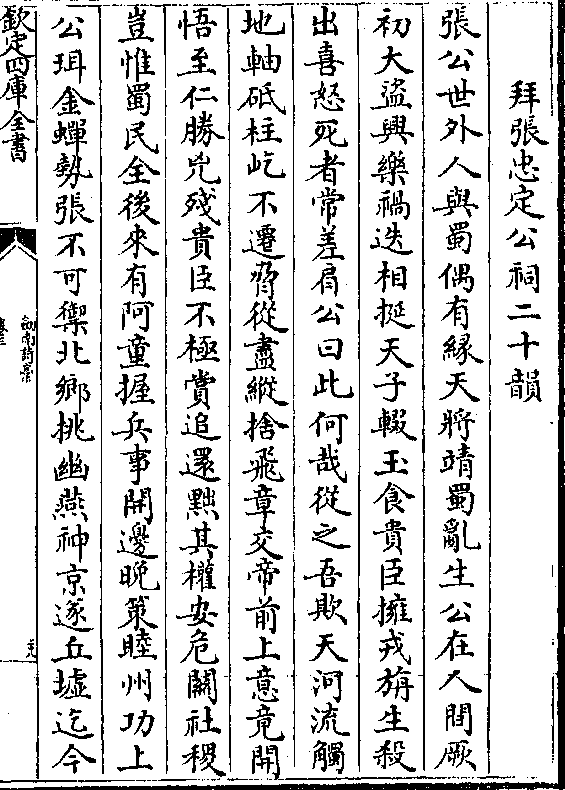 拜張忠定公祠二十韻
張公世外人與蜀偶有緣天將靖蜀亂生公在人間厥
初大盜興樂禍迭相挻天子輟玉食貴臣擁戎旃生殺
出喜怒死者常差肩公曰此何哉從之吾欺天河流觸
地軸砥柱屹不遷脅從盡縱捨飛章交帝前上意竟開
悟至仁勝兇殘貴臣不極賞追還黜其權安危關社稷
豈惟蜀民全後來有阿童握兵事開邊晚策睦州功上
公珥金蟬勢張不可禦北鄉挑幽燕神京遂丘墟迄今
欽定四庫全書
劍南詩稾
卷三